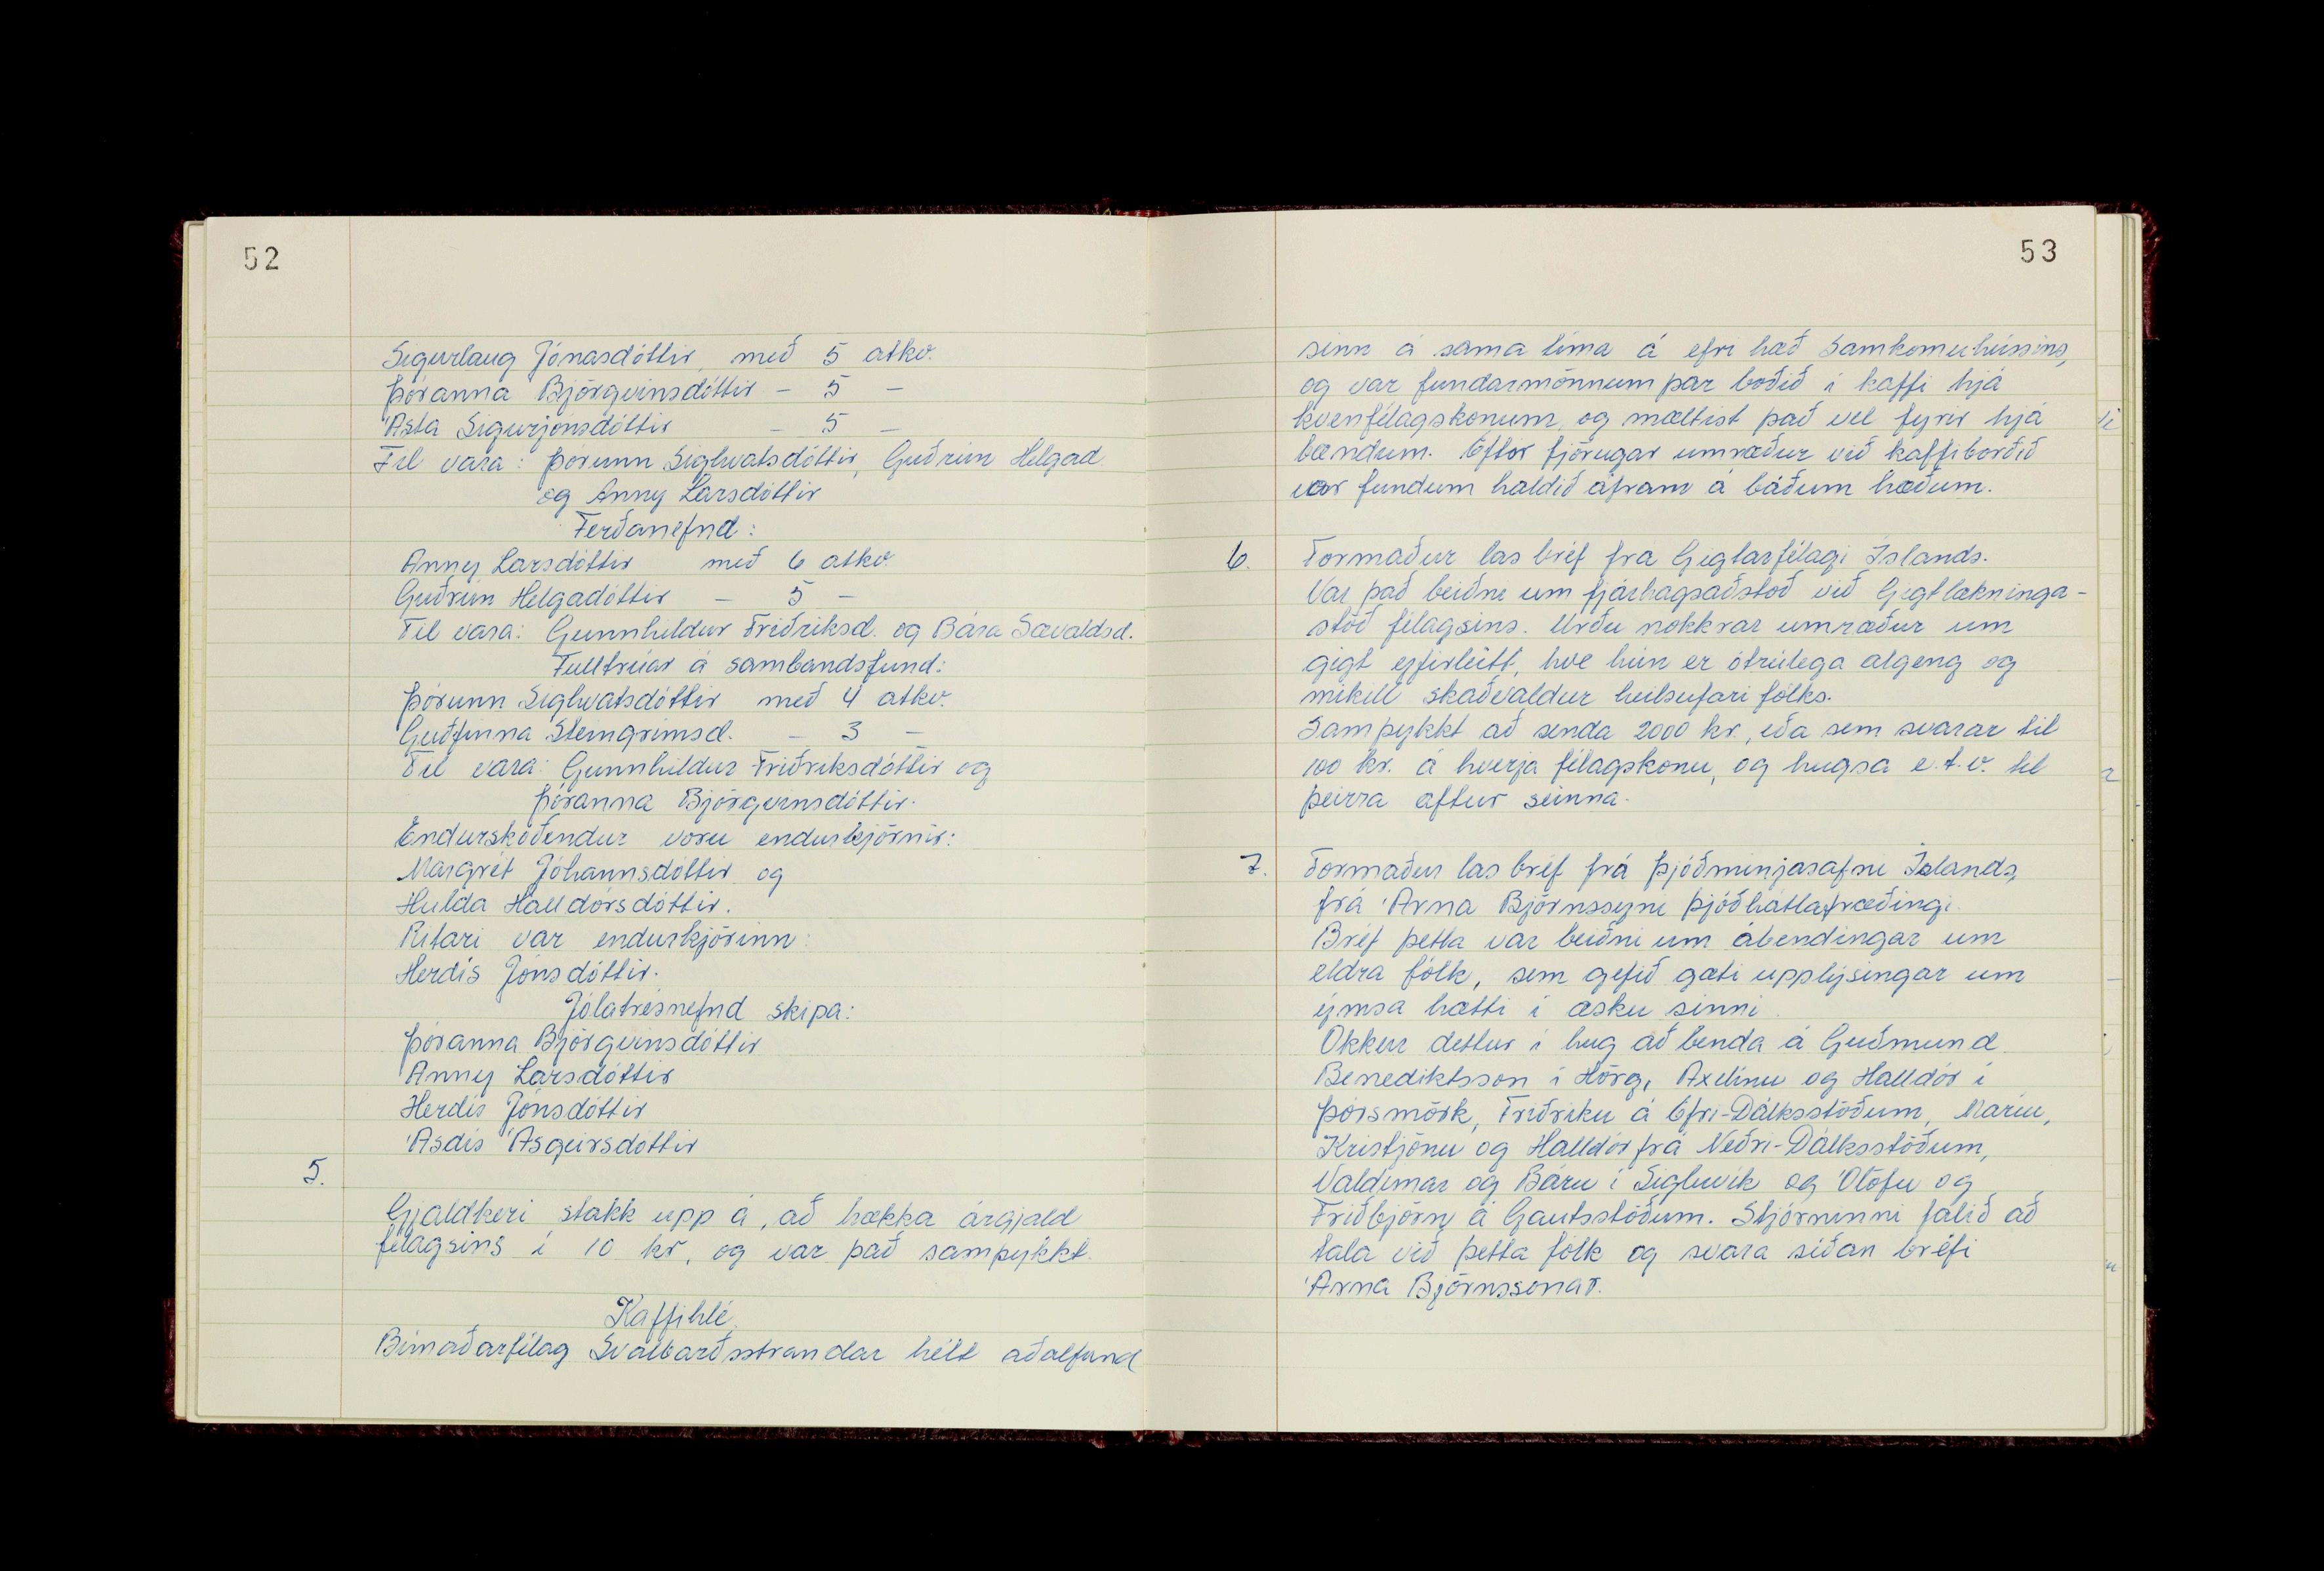 52
Sigurlaug Jónasdóttir, með 5 atkv.
Þóranna Björgvinsdóttir - 5 -
Ásta Sigurjónsdóttir - 5 -
Til vara: Þórunn Sighvatsdóttir, Guðrún Helgad.
og Anny Larsdóttir
Ferðanefnd:
Anny Larsdóttir með 6 atkv.
Guðrún Helgadóttir - 5 -
Til vara: Gunnhildur Friðriksd. og Bára Sævaldsd.
Fulltrúar á sambandsfund:
Þórunn Sighvatsdóttir með 4 atkv.
Guðfinna Steingrímsd. - 3 -
Til vara: Gunnhildur Friðriksdóttir og
Þóranna Björgvinsdóttir.
Endurskoðendur voru endurkjörnir:
Margrét Jóhannsdóttir og
Hulda Halldórsdóttir.
Ritari var endurkjörinn:
Herdís Jónsdóttir.
Jólatrésnefnd skipa:
Þóranna Björgvinsdóttir
Anny Larsdóttir
Herdís Jónsdóttir
Ásdís Ásgeirsdóttir
5.
Gjaldkeri stakk upp á, að hækka árgjald
félagsins í 10 kr, og var það samþykkt.
Kaffihlé.
Búnaðarfélag Svalbarðsstrandar hélt aðalfund
53
sinn á sama tíma á efri hæð Samkomuhússins,
og var fundarmönnum þar boðið í kaffi hjá
kvenfélagskonum, og mæltist það vel fyrir hjá
bændum. Eftir fjörugar umræður við kaffiborðið
var fundum haldið áfram á báðum hæðum.
6. Formaður las bréf frá Gigtarfélagi Íslands.
Var það beiðni um fjárhagsaðstoð við Gigtlækninga-
stöð félagsins. Urðu nokkrar umræður um
gigt yfirleitt, hve hún er ótrúlega algeng og
mikill skaðvaldur heilsufari fólks.
Samþykkt að senda 2000 kr., eða sem svarar til
100 kr. á hverja félagskonu, og hugsa e.t.v. til
þeirra aftur seinna.
7. Formaður las bréf frá Þjóðminjasafni Íslands,
frá Árna Björnssyni þjóðháttafræðingi.
Bréf þetta var beiðni um ábendingar um
eldra fólk, sem gefið gæti upplýsingar um
ýmsa hætti í æsku sinni.
Okkur dettur í hug að benda á Guðmund
Benediktsson í Hörg, Axelínu og Halldór í
Þórsmörk, Friðriku á Efri-Dálksstöðum, Maríu,
Kristjönu og Halldór frá Neðri-Dálksstöðum,
Valdimar og Báru í Sigluvík og Ólöfu og
Friðbjörn á Gautsstöðum. Stjórninni falið að
tala við þetta fólk og svara síðan bréfi
Árna Björnssonar.